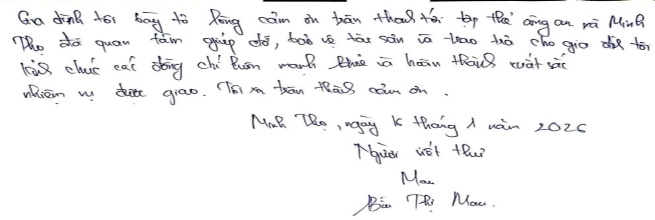 Gia đình tôi bày tỏ lòng cảm ơn chân thành tới tập thể công an xã Minh
Thọ đã quan tâm giúp đỡ, bảo vệ tài sản và trao trả cho gia đình tôi
kính chúc các đồng chí luôn mạnh khỏe và hoàn thành xuất sắc
nhiệm vụ được giao. Tôi xin trân thành cảm ơn.
Minh Thọ, ngày 16 tháng 1 năm 2026
Người viết thư
Mau
Thị Mau.